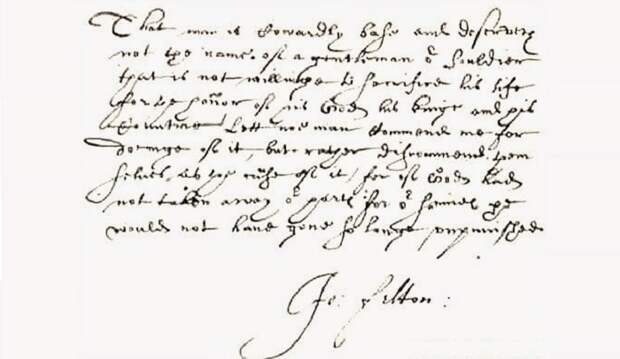 That man is cowardly base and deserveth
not the name of a gentleman oʳ Souldier
that is not willinge to sacrifice his life
for the honor of his God his Kinge and his
Countrie Lett noe man commend me for
doeinge of it, but rather discommend them
selves as the cause of it, for if God had
not taken away oʳ harts for oʳ sinnes he
would not have gone so longe unpunished
Jo: Felton: